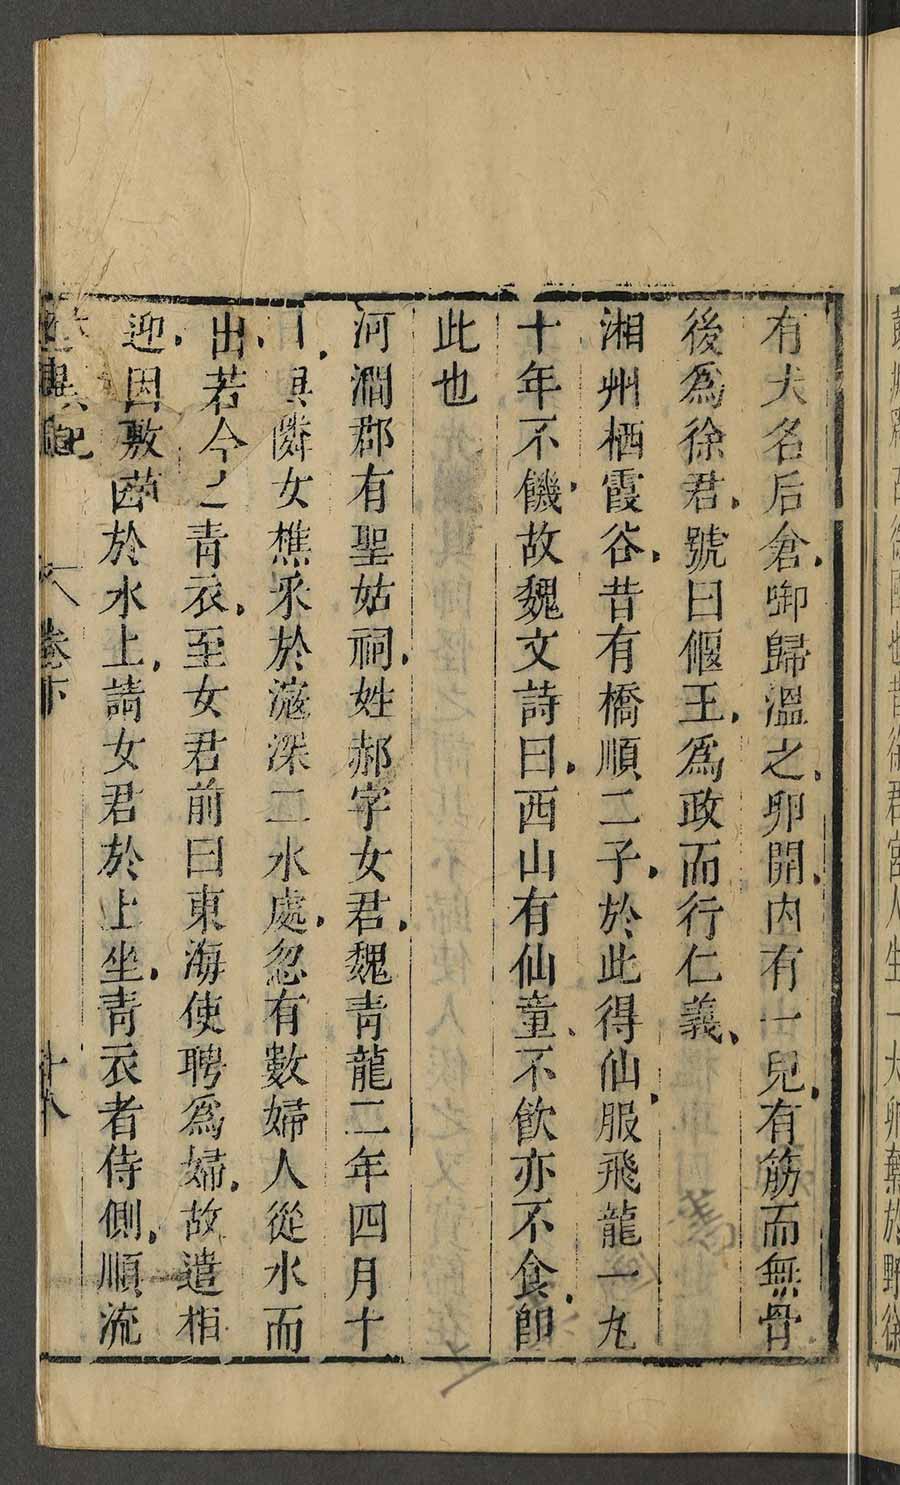 有犬名后倉啣歸溫之卵開内有一兒有筋而無骨
後爲徐君號曰偃王爲政而行仁義
湘州栖霞谷昔有橋順二子於此得仙服飛龍一丸
十年不饑故魏文詩曰西山有仙童不飲亦不食即
此也
河澗郡有聖姑祠姓郝字女君魏青龍二年四月十
日與隣女樵采於滱深二水處忽有數婦人從水而
出若今之青衣至女君前曰東海使聘爲婦故遣相
迎因敷茵於水上請女君於上坐青衣者侍側順流
述異記 卷下 十八